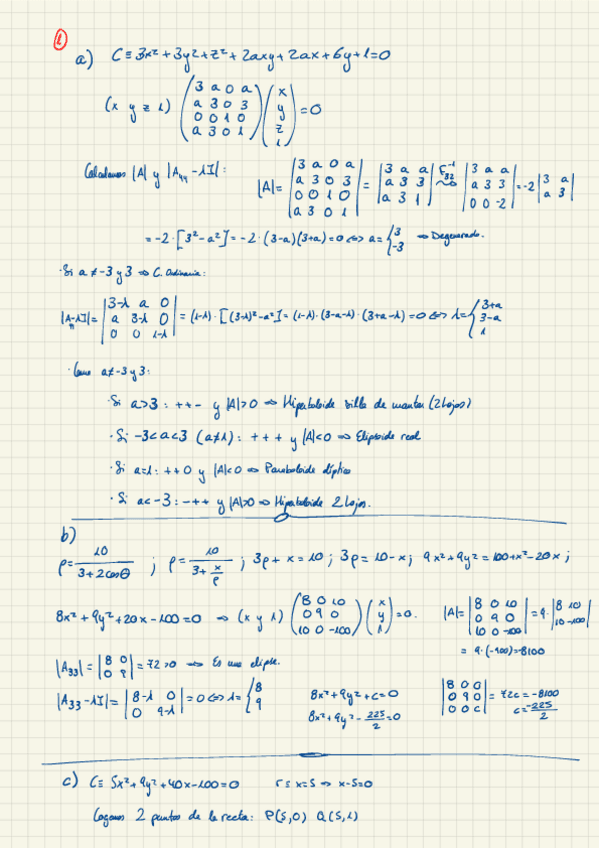 1
a) C ≡ 3x² + 3y² + z² + 2axy + 2ax + 6y + 1 = 0
(x y z 1) (3 a 0 a / a 3 0 3 / 0 0 1 0 / a 3 0 1) (x / y / z / 1) = 0
Calculamos |A| y |A₄₄ - λI| : |A| = |3 a 0 a / a 3 0 3 / 0 0 1 0 / a 3 0 1| = |3 a a / a 3 3 / a 3 1| F₃₂⁻¹ ~ |3 a a / a 3 3 / 0 0 -2| = -2 |3 a / a 3|
= -2 · [3² - a²] = -2 · (3-a)(3+a) = 0 ⇔ a = {3 / -3 ⇒ Degenerado.
· Si a ≠ -3 y 3 ⇒ C. Ordinaria:
|A₄₄-λI| = |3-λ a 0 / a 3-λ 0 / 0 0 1-λ| = (1-λ) · [(3-λ)² - a²] = (1-λ) · (3-a-λ) · (3+a-λ) = 0 ⇔ λ = {3+a / 3-a / 1
· Como a ≠ -3 y 3:
· Si a > 3 : + + - y |A| > 0 ⇒ Hiperboloide silla de montar (2 hojas)
· Si -3 < a < 3 (a ≠ 1) : + + + y |A| < 0 ⇒ Elipsoide real
· Si a = 1 : + + 0 y |A| < 0 ⇒ Paraboloide elíptico
· Si a < -3 : - + + y |A| > 0 ⇒ Hiperboloide 2 hojas.
b)
ρ = 10 / (3 + 2cosθ) ; ρ = 10 / (3 + x/ρ) ; 3ρ + x = 10 ; 3ρ = 10 - x ; 9x² + 9y² = 100 + x² - 20x ;
8x² + 9y² + 20x - 100 = 0 ⇒ (x y 1) (8 0 10 / 0 9 0 / 10 0 -100) (x / y / 1) = 0. |A| = |8 0 10 / 0 9 0 / 10 0 -100| = 9 · |8 10 / 10 -100|
= 9 · (-900) = -8100
|A₃₃| = |8 0 / 0 9| = 72 > 0 ⇒ Es una elipse.
|A₃₃ - λI| = |8-λ 0 / 0 9-λ| = 0 ⇔ λ = {8 / 9 8x² + 9y² + c = 0 |8 0 0 / 0 9 0 / 0 0 c| = 72c = -8100
8x² + 9y² - 225/2 = 0 c = -225/2
c) C ≡ 5x² + 9y² + 40x - 100 = 0 r ≡ x = 5 ⇒ x - 5 = 0
Cogemos 2 puntos de la recta: P(5,0) Q(5,1)